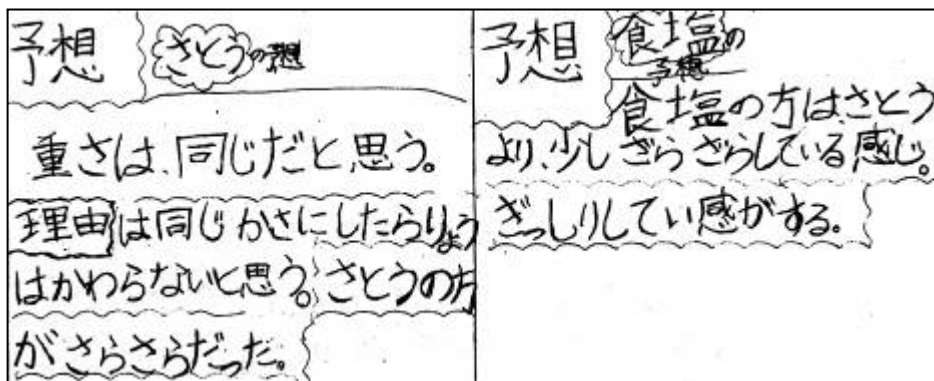 予想 さとうの予想
重さは、同じだと思う。
理由は同じかさにしたらりょう
はかわらないと思う。さとうの方
がさらさらだった。
予想 食塩の
予想
食塩の方は、さとう
より、少しざらざらしている感じ。
ぎっしりしてい感がする。